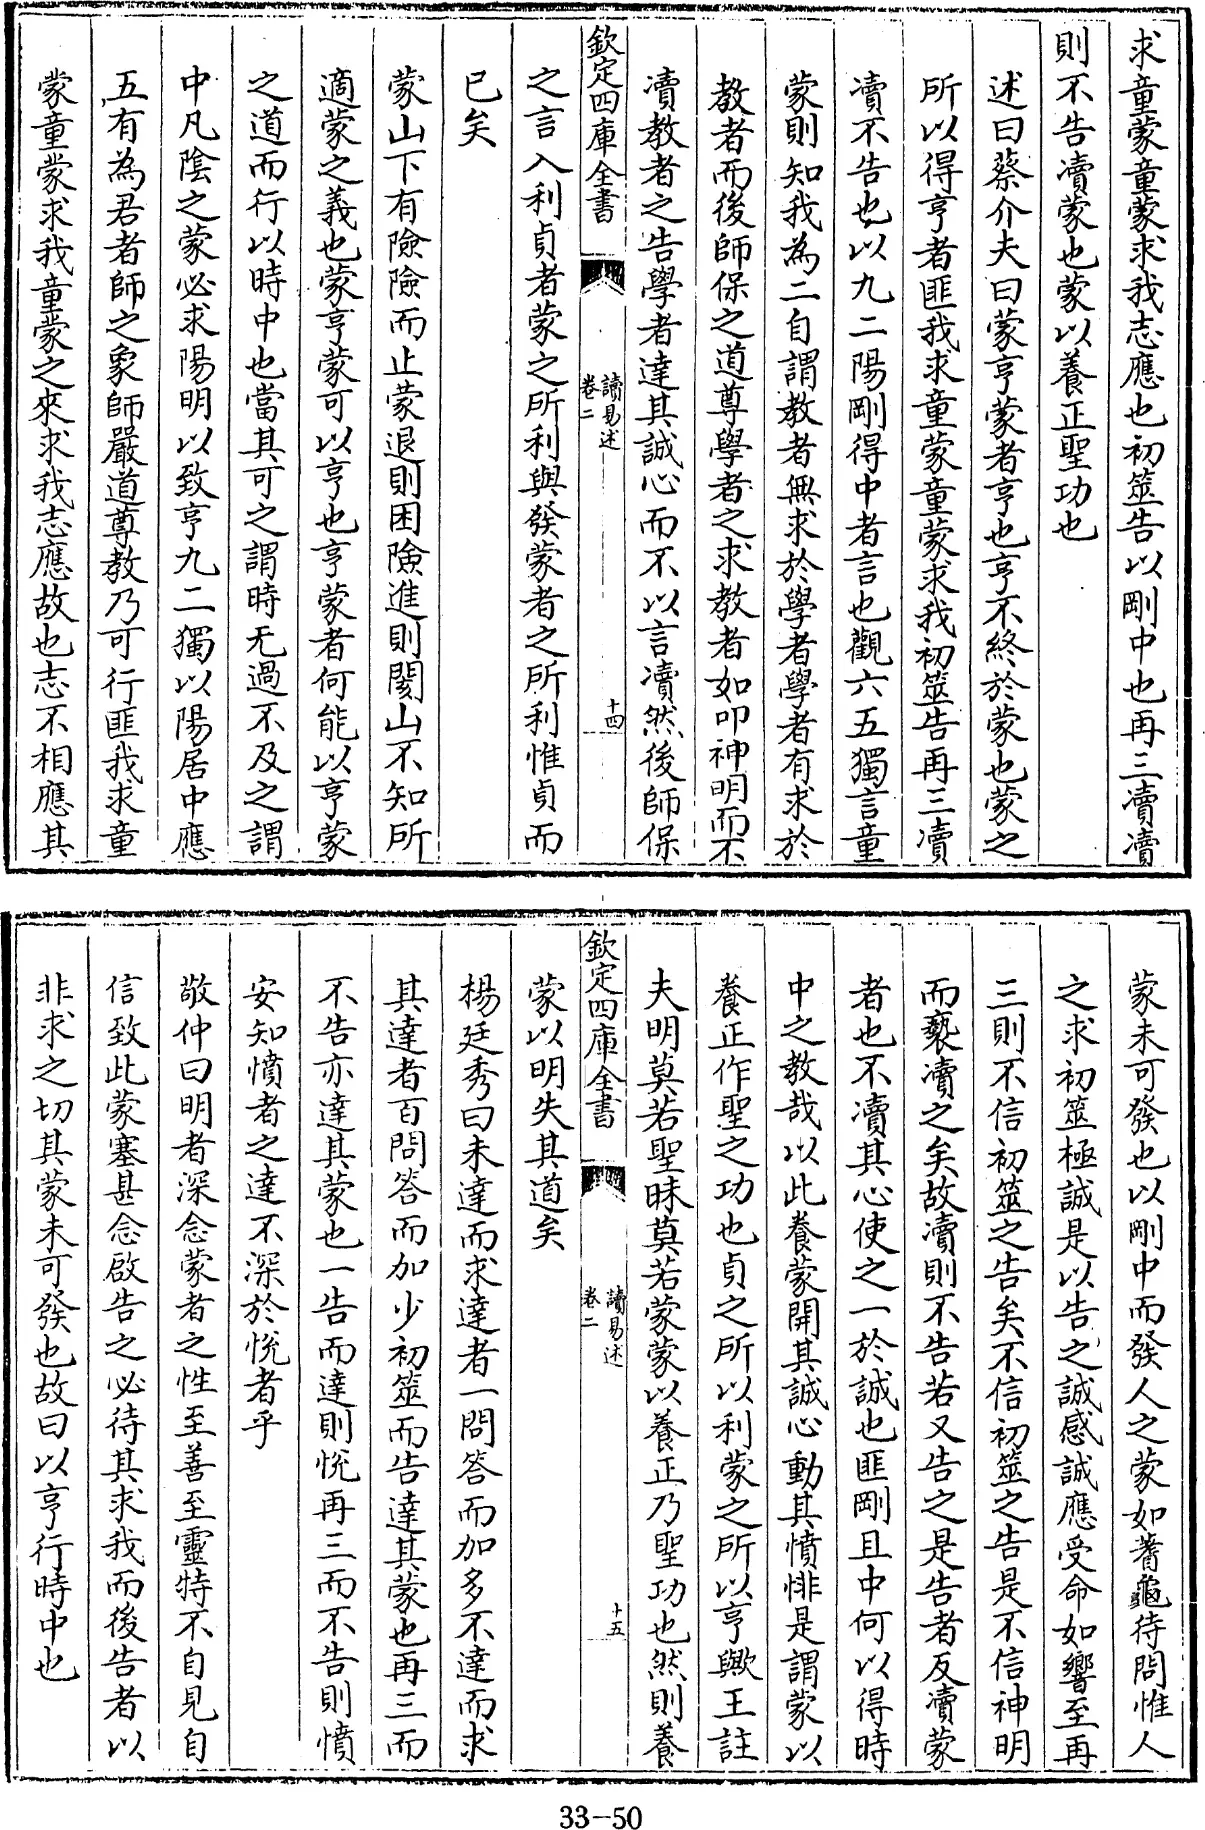 求童蒙童蒙求我志應也初筮告以剛中也再三瀆瀆
則不告瀆蒙也蒙以養正聖功也
述曰蔡介夫曰蒙亨蒙者亨也亨不終於蒙也蒙之
所以得亨者匪我求童蒙童蒙求我初筮告再三瀆
瀆不告也以九二陽剛得中者言也觀六五獨言童
蒙則知我為二自謂教者無求於學者學者有求於
教者而後師保之道尊學者之求教者如叩神明而不
瀆教者之告學者達其誠心而不以言瀆然後師保
欽定四庫全書
讀易述
卷二
十四
之言入利貞者蒙之所利與發蒙者之所利惟貞而
已矣
蒙山下有險險而止蒙退則困險進則閡山不知所
適蒙之義也蒙亨蒙可以亨也亨蒙者何能以亨蒙
之道而行以時中也當其可之謂時无過不及之謂
中凡陰之蒙必求陽明以致亨九二獨以陽居中應
五有為君者師之象師嚴道尊教乃可行匪我求童
蒙童蒙求我童蒙之來求我志應故也志不相應其
蒙未可發也以剛中而發人之蒙如蓍龜待問惟人
之求初筮極誠是以告之誠感誠應受命如響至再
三則不信初筮之告矣不信初筮之告是不信神明
而褻瀆之矣故瀆則不告若又告之是告者反瀆蒙
者也不瀆其心使之一於誠也匪剛且中何以得時
中之教哉以此養蒙開其誠心動其憤悱是謂蒙以
養正作聖之功也貞之所以利蒙之所以亨歟王註
夫明莫若聖昧莫若蒙蒙以養正乃聖功也然則養
欽定四庫全書
讀易述
卷二
十五
蒙以明失其道矣
楊廷秀曰未達而求達者一問答而加多不達而求
其達者百問答而加少初筮而告達其蒙也再三而
不告亦達其蒙也一告而達則悅再三而不告則憤
安知憤者之達不深於悅者乎
敬仲曰明者深念蒙者之性至善至靈特不自見自
信致此蒙塞甚念啟告之必待其求我而後告者以
非求之切其蒙未可發也故曰以亨行時中也
33-50